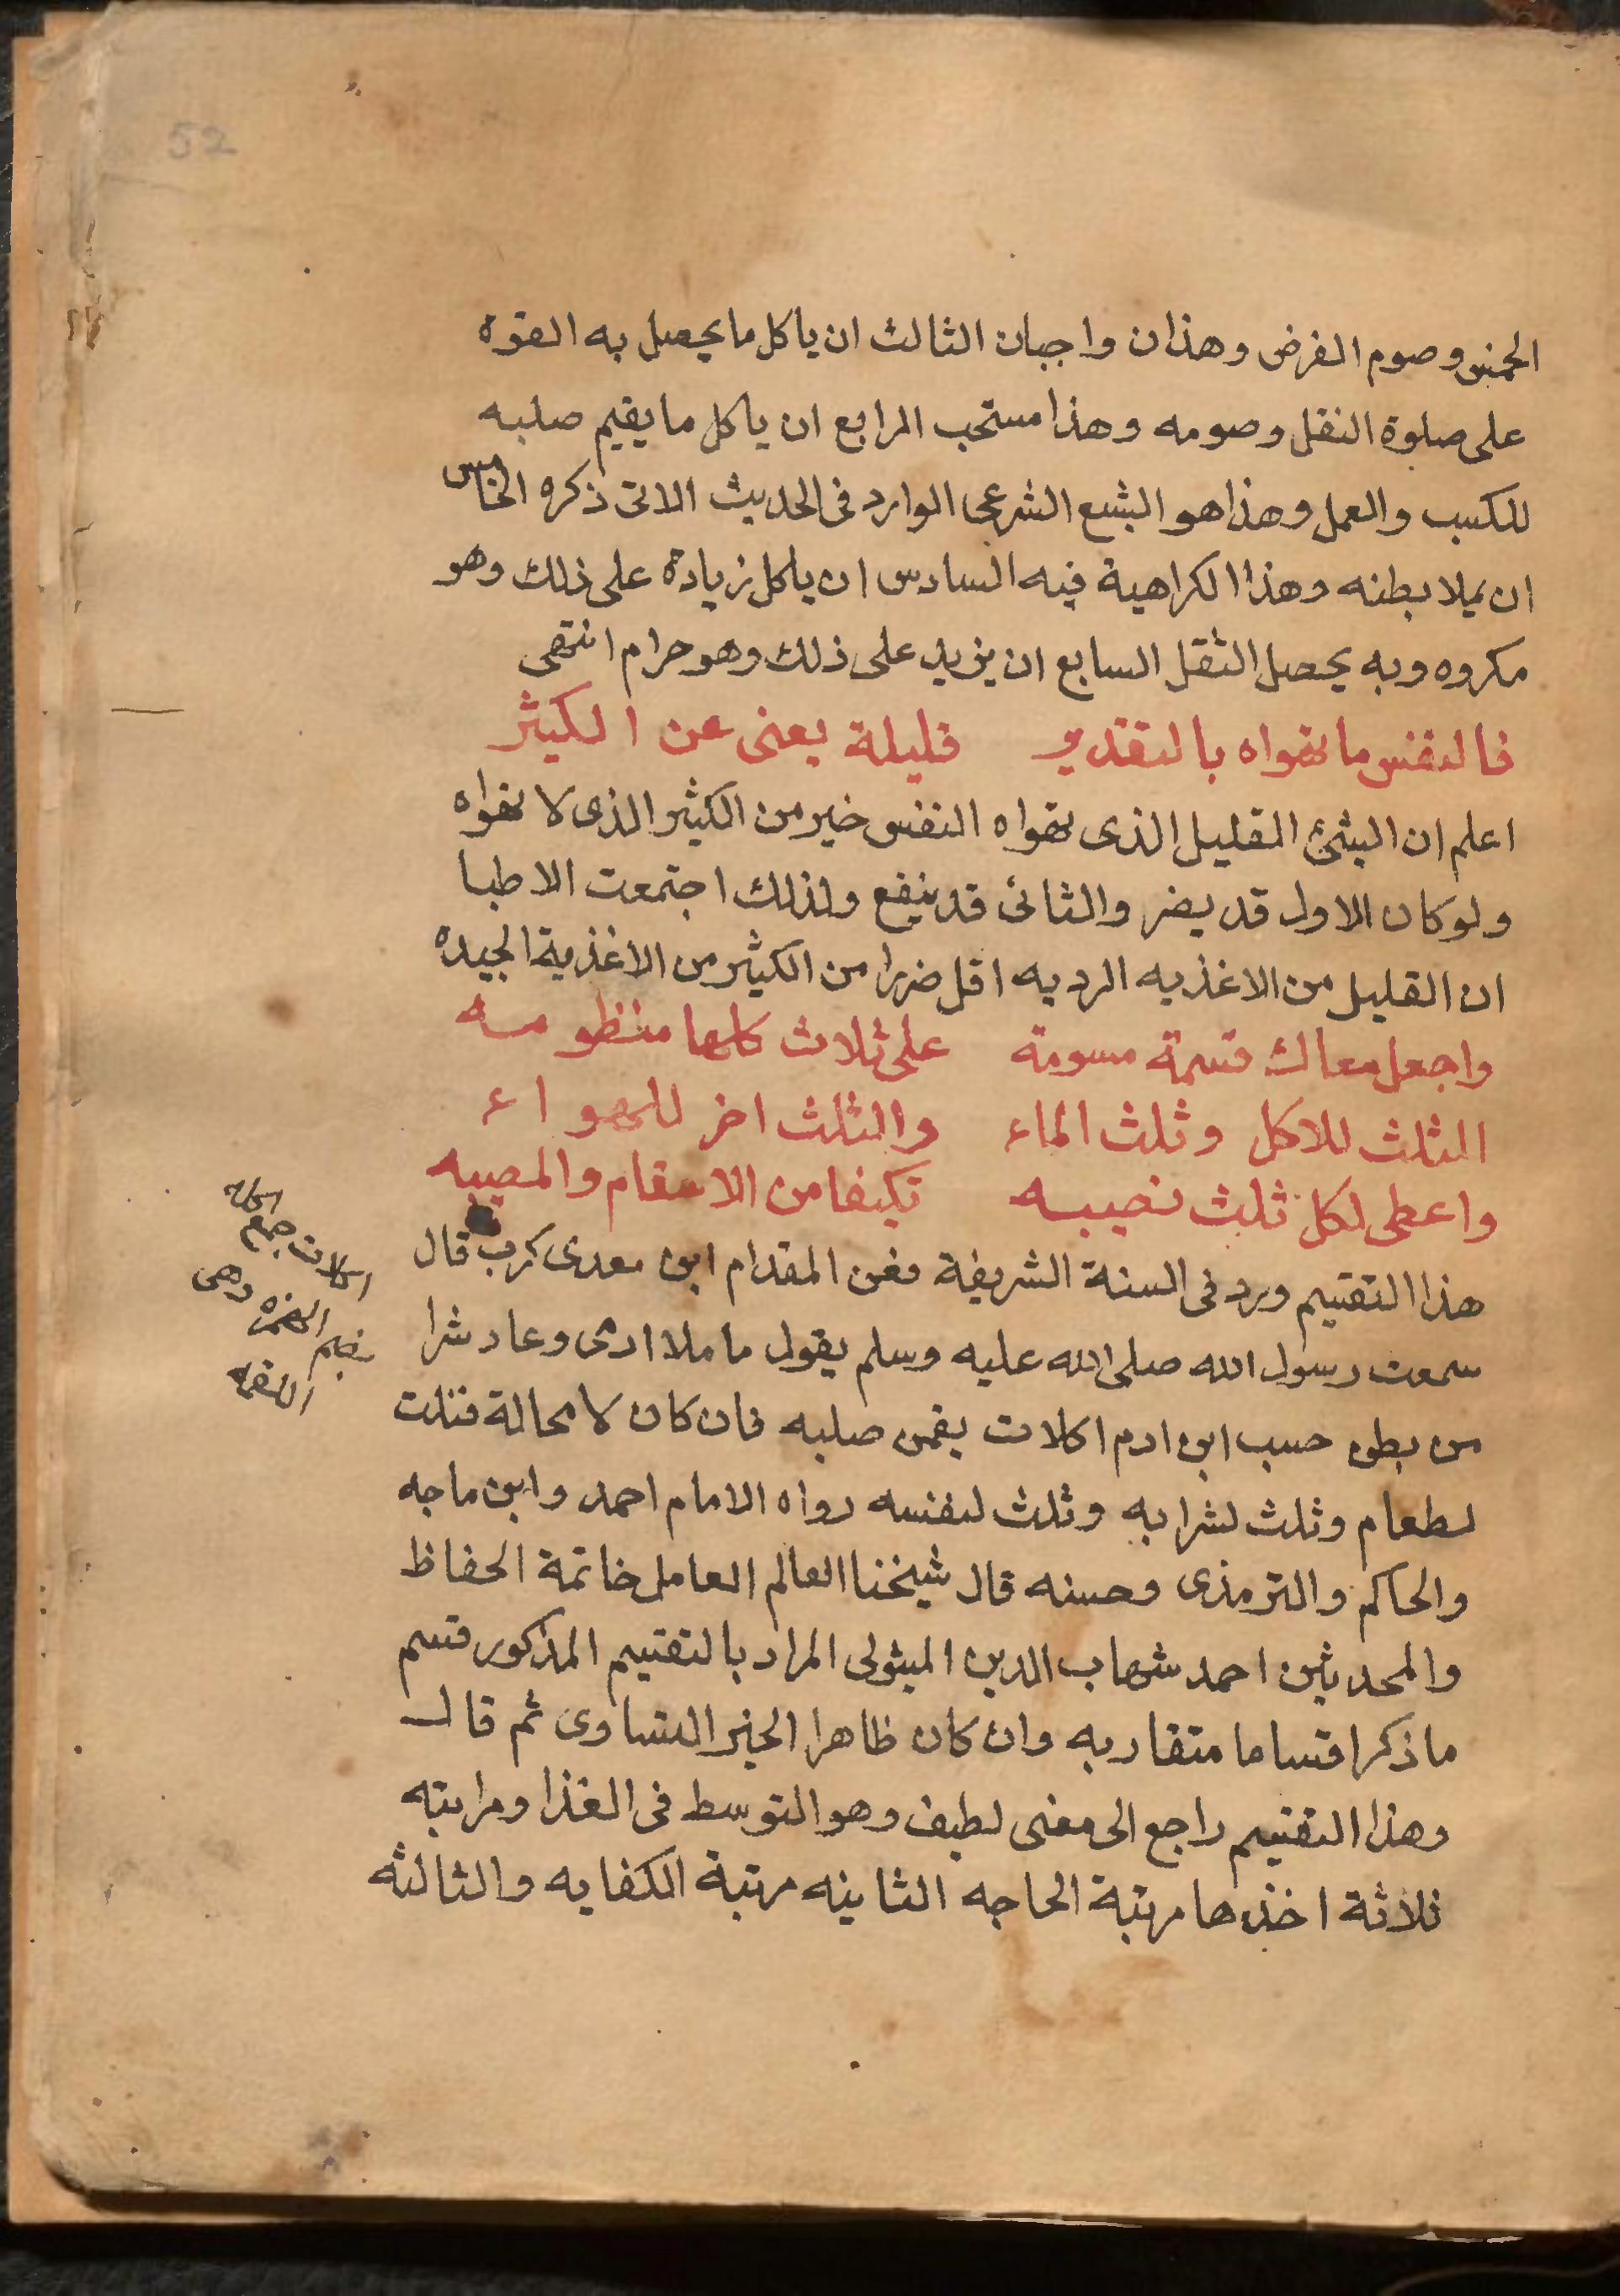 52
الخمس وصوم الفرض وهذان واجبان الثالث ان ياكل ما يحصل به القوه
على صلوة النفل وصومه وهذا مستحب الرابع ان ياكل ما يقيم صلبه
للكسب والعمل وهذا هو الشبع الشرعى الوارد فى الحديث الاتى ذكره الخامس
ان يملا بطنه وهذا الكراهية فيه السادس ان ياكل زيادة على ذلك وهو
مكروه وبه يحصل الثقل السابع ان يزيد على ذلك وهو حرام انتهى
فالنفس ما تهواه بالتقدير قليله يغنى عن الكثير
اعلم ان الشئ القليل الذى تهواه النفس خير من الكثير الذى لا تهواه
ولو كان الاول قد يضر والثانى قد ينفع ولذلك اجتمعت الاطبا
ان القليل من الاغذيه الرديه اقل ضررا من الكثير من الاغذية الجيده
واجعل معاك قسمة مسومة على ثلاث كلها منظومه
الثلث للاكل وثلث الماء والثلث اخر للهواء
واعطى لكل ثلث نصيبه تكيفا من الاسقام والمصيبه
هذا التقسيم ورد فى السنة الشريفة فعن المقدام ابن معدى كرب قال
سمعت رسول الله صلى الله عليه وسلم يقول ما ملا ادمى وعاد شرا
من بطن حسب ابن ادم اكلات يقمن صلبه فان كان لا محالة فثلث
لطعام وثلث لشرابه وثلث لنفسه رواه الامام احمد وابن ماجه
والحاكم والترمذى وحسنه قال شيخنا العالم العامل خاتمة الحفاظ
والمحدثين احمد شهاب الدين المبثولى المراد بالتقسيم المذكور قسم
ما ذكر اقساما متقاربه وان كان ظاهرا الخبر التساوى ثم قال
وهذا التقسيم راجع الى معنى لطيف وهو التوسط فى الغذا ومراتبه
ثلاثة اخذها مرتبة الحاجه الثانيه مرتبة الكفايه والثالثه
اكله
اكلات جمع
بضم الهمزه وهى
اللقمه